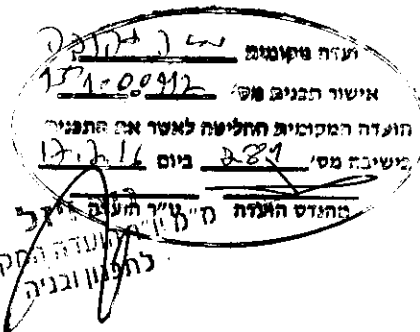 ועדה מקומית
אישור תכנית מס' 151-00912
הועדה המקומית החליטה לאשר את התכנית
בישיבה מס' 281 ביום 17.2.16
מהנדס הועדה יו"ר הועדה
מ"מ יו"ר הועדה
לתכנון ובניה